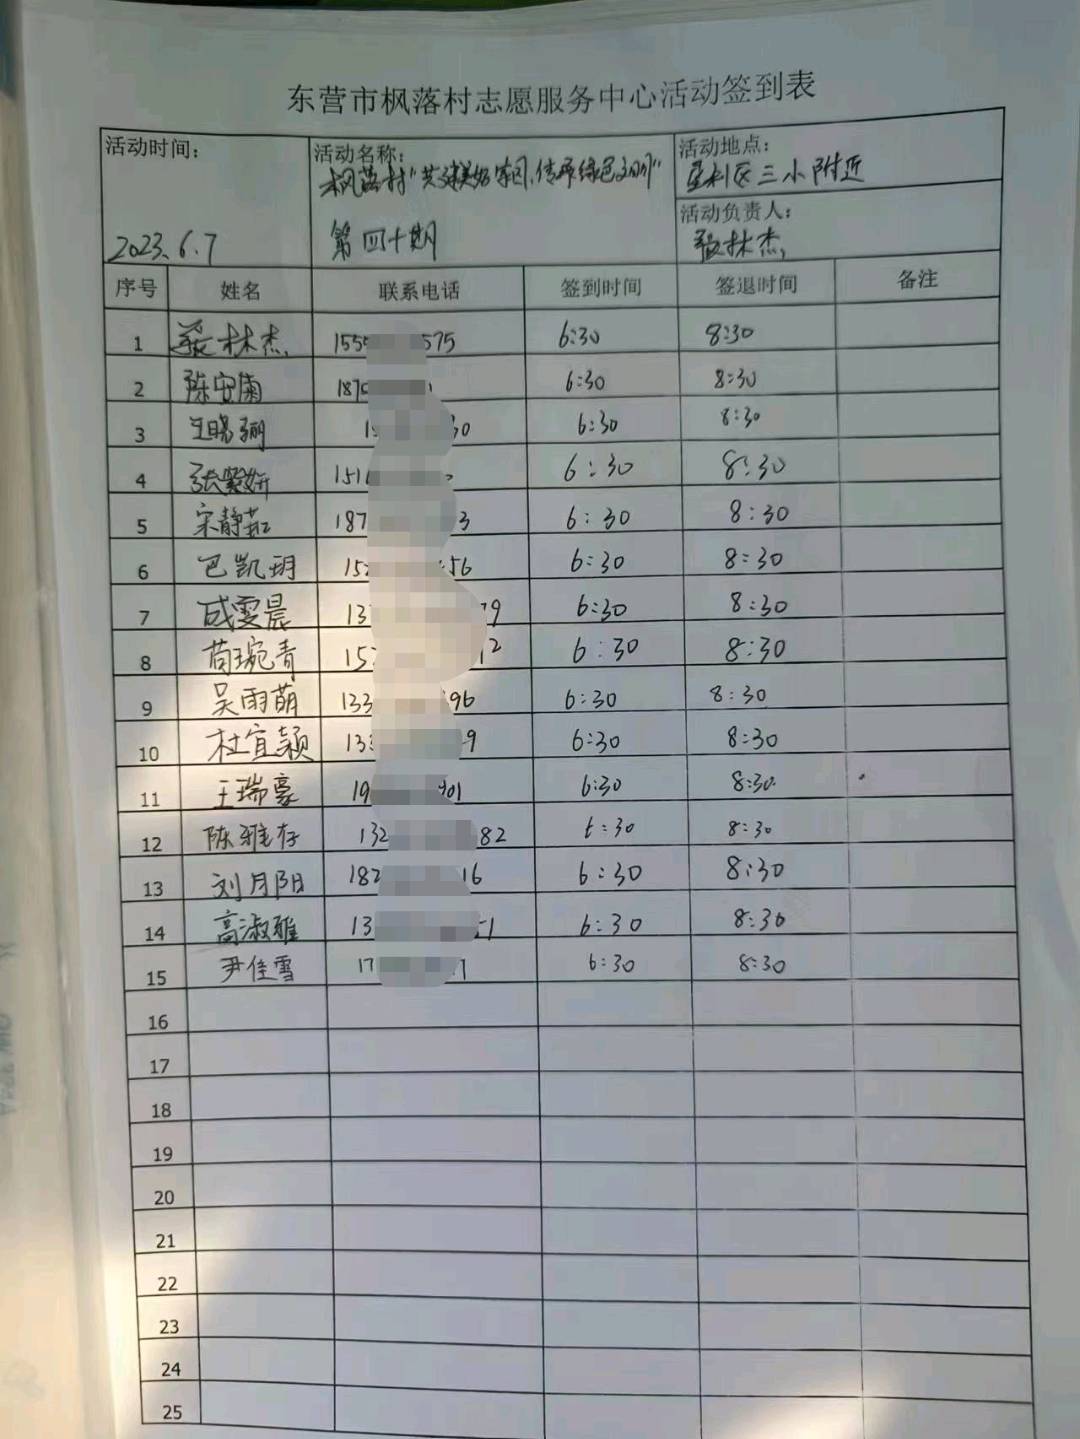 东营市枫落村志愿服务中心活动签到表
活动时间： 活动名称： 活动地点：
枫落村“共建美好家园，传承绿色文明” 垦利区三小附近
2023.6.7 第四十期 活动负责人：
林杰
序号 姓名 联系电话 签到时间 签退时间 备注
1 林杰 155 575 6:30 8:30
2 陈安南 187 6:30 8:30
3 王晓 30 6:30 8:30
4 张紫妍 151 6:30 8:30
5 宋静茹 187 3 6:30 8:30
6 巴凯玥 15 56 6:30 8:30
7 成雯晨 13 79 6:30 8:30
8 苟琬青 15 12 6:30 8:30
9 吴雨萌 133 96 6:30 8:30
10 杜宜颖 13 9 6:30 8:30
11 王瑞豪 19 901 6:30 8:30
12 陈雅存 132 82 6:30 8:30
13 刘月阳 182 16 6:30 8:30
14 高淑雅 13 51 6:30 8:30
15 尹佳雪 17 7 6:30 8:30
16
17
18
19
20
21
22
23
24
25